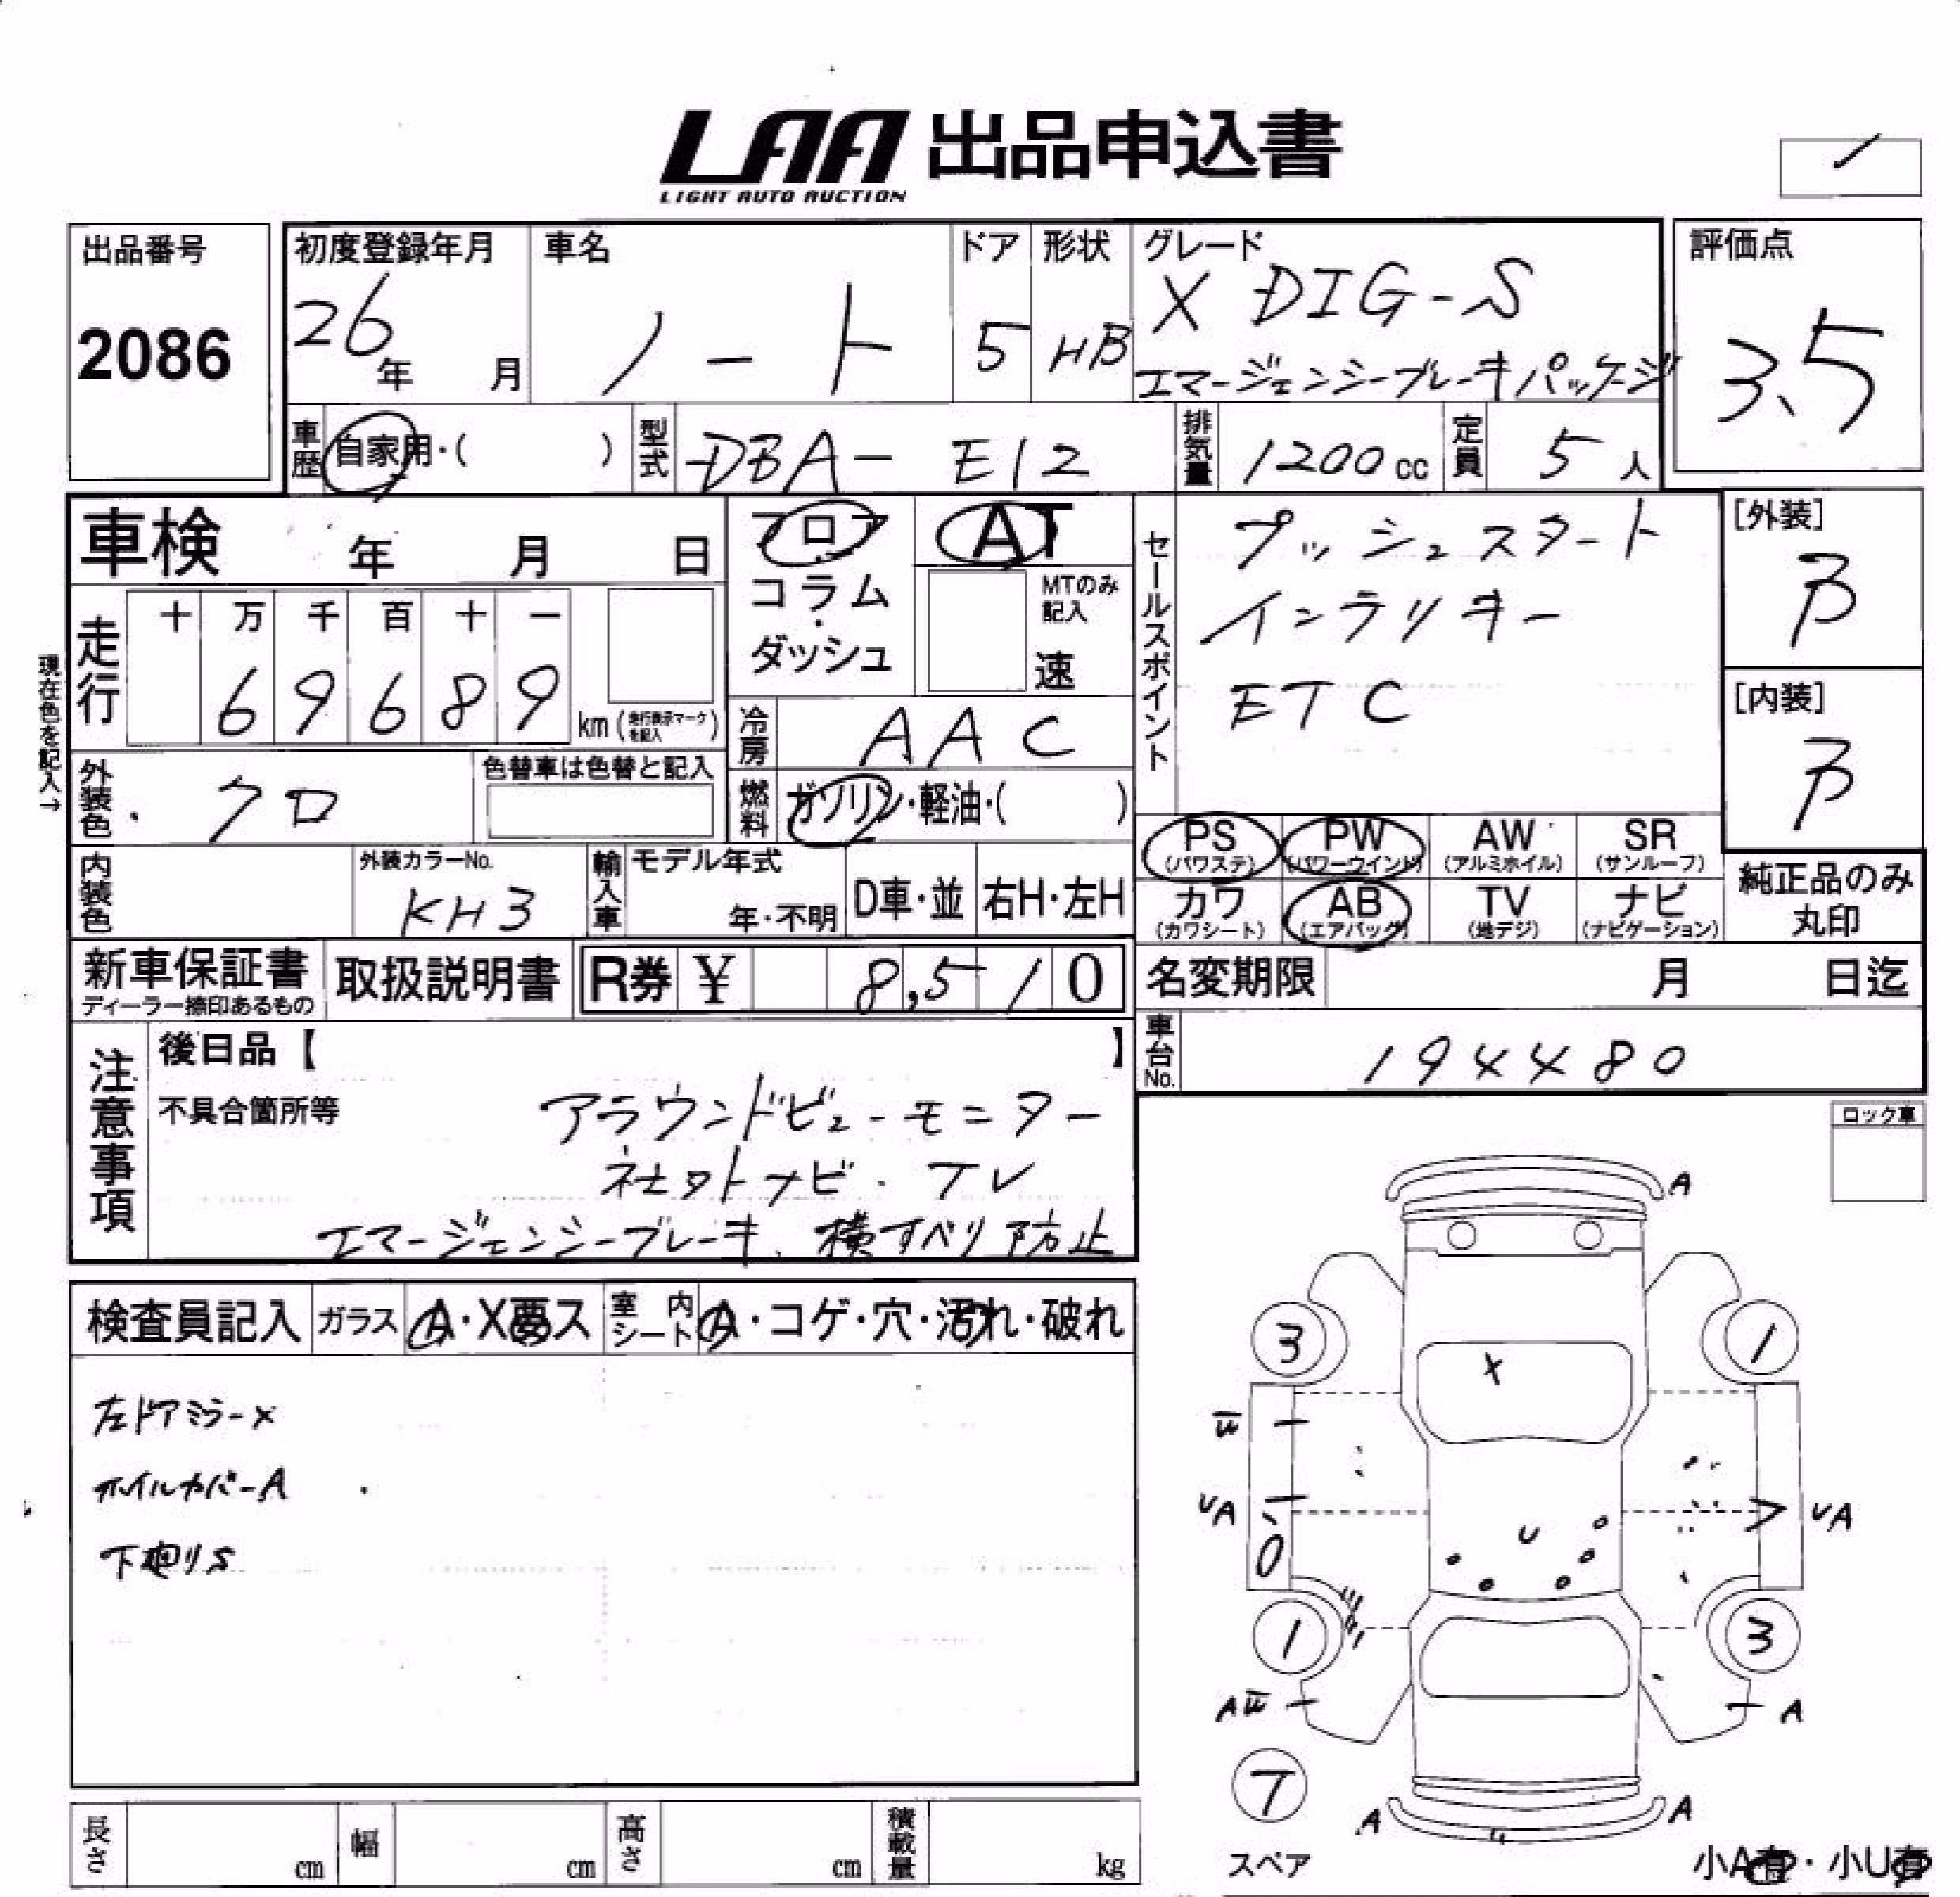 LAA 出品申込書
LIGHT AUTO AUCTION
出品番号
2086
初度登録年月
26年 月
車名
ノート
ドア
5
形状
HB
グレード
X DIG-S
エマージェンシーブレーキパッケージ
評価点
3.5
車歴
自家用・( )
型式
DBA-E12
排気量
1200cc
定員
5人
車検 年 月 日
現在色を記入→
走行
十 万 千 百 十 一
6 9 6 8 9
km (走行表示マークを記入)
フロア
コラム
・
ダッシュ
AT
MTのみ記入
速
冷房
AAC
燃料
ガソリン・軽油・( )
セールスポイント
プッシュスタート
インテリキー
ETC
[外装]
B
[内装]
B
外装色
クロ
色替車は色替と記入
内装色
外装カラーNo.
KH3
輸入車
モデル年式
年・不明
D車・並
右H・左H
PS (パワステ)
PW (パワーウインド)
AW (アルミホイル)
SR (サンルーフ)
カワ (カワシート)
AB (エアバッグ)
TV (地デジ)
ナビ (ナビゲーション)
純正品のみ
丸印
新車保証書
ディーラー捺印あるもの
取扱説明書
R券 ¥ 8,510
名変期限 月 日迄
車台No.
194480
注意事項
後日品【 】
不具合箇所等
アラウンドビューモニター
社外ナビ・TV
エマージェンシーブレーキ、横すべり防止
ロック車
検査員記入
ガラス
A・X要ス
室内シート
A・コゲ・穴・汚れ・破れ
左ドアミラーX
ホイルカバーA
下廻りS
A
3
1
X
W
UA
U
UA
1
3
AW
A
7
スペア
A
A
小A有・小U有
長さ cm
幅 cm
高さ cm
積載量 kg